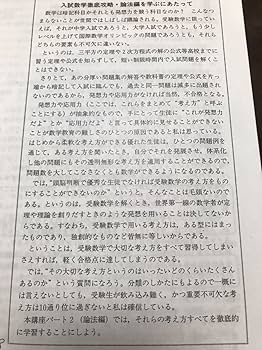 入試数学徹底攻略・論法編を学ぶにあたって
数学は暗記科目かそれとも発想力を競う科目なのか? こんなつ
まらないことが世間ではしばしば議論される。受験数学に限ってい
えば、それが中学入試であろうと、大学入試であろうと、もう少し
レベルを上げて国際数学オリンピックの問題であろうとも、それら
どちらの要素も不可欠に違いない。
というのは、三平方の定理や2次方程式の解の公式等高校までに
習う定理や公式を知らずして、短い制限時間内で入試問題を解くこ
とはできない。
さりとて、あの分厚い問題集の解答や教科書の定理や公式を片っ
端から暗記して入試に臨んでも、過去と同一問題はめったに出題さ
れないのであるから、発想力や応用力がなければ当然、不合格となる。
発想力や応用力(ここでは、これらをまとめて“考え方”と呼ぶ
ことにする)が抽象的なもので、手にとって生徒に“これが発想力
だよ”とか“応力力だよ”と言って具体的に見せることができない
ことが数学教育の難しさのひとつの原因であると私は思っている。
はじめから柔軟な考え方ができる優れた生徒は、ひとつの問題例を
通して、ある考え方を聞いたとき、自分でそれを発展させ、体系化
し他の問題にもその透明無形な考え方を適用することができるので、
問題数を大してこなさなくとも数学ができるようになるのである。
では、“頭脳明晰で優秀な生徒でなければ受験数学の考え方をもの
にすることができないのか”というと、そんなことは毛頭ないのであ
る。というのは、受験数学を解くとき、世界第一線の数学者が定
理や理論を創りだすときのような発想を用いることは決してないか
らである。すなわち、受験数学で用いる考え方は、ある型にはまっ
たものであり、独創的なものなど皆無に等しいからである。
ということは、受験数学で大切な考え方をすべて習得してしまい
さえすれば、軽く合格点に達してしまうのである。
では、“その大切な考え方というのはいったいどのくらいたくさん
あるのか”という質問になろう。分類のしかたにもよるので一概に
は言えないとしても、受験生が飲み込み難く、かつ重要不可欠な考
え方は10通り位に過ぎないと私は確信している。
本講座パート2(論法編)では、それらの考え方すべてを徹底的
に学習することにしよう。